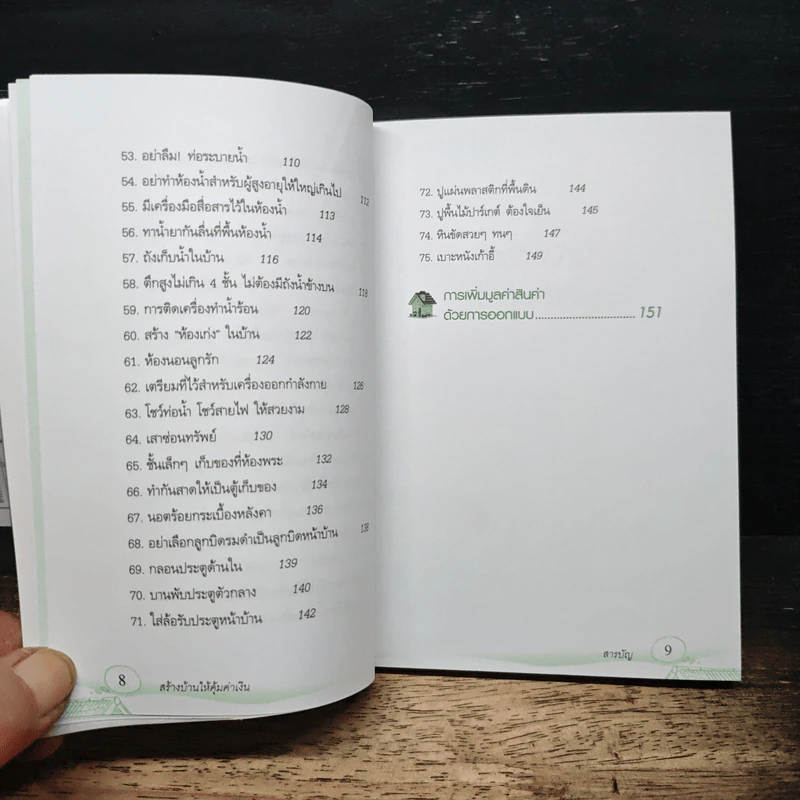 53. อย่าลืม! ท่อระบายน้ำ 110
54. อย่าทำห้องน้ำสำหรับผู้สูงอายุให้ใหญ่เกินไป 112
55. มีเครื่องมือสื่อสารไว้ในห้องน้ำ 113
56. ทาน้ำยากันลื่นที่พื้นห้องน้ำ 114
57. ถังเก็บน้ำในบ้าน 116
58. ตึกสูงไม่เกิน 4 ชั้น ไม่ต้องมีถังน้ำข้างบน 118
59. การติดเครื่องทำน้ำร้อน 120
60. สร้าง "ห้องเก่ง" ในบ้าน 122
61. ห้องนอนลูกรัก 124
62. เตรียมที่ไว้สำหรับเครื่องออกกำลังกาย 126
63. โชว์ท่อน้ำ โชว์สายไฟ ให้สวยงาม 128
64. เสาซ่อนทรัพย์ 130
65. ชั้นเล็กๆ เก็บของที่ห้องพระ 132
66. ทำกันสาดให้เป็นตู้เก็บของ 134
67. นอตร้อยกระเบื้องหลังคา 136
68. อย่าเลือกลูกบิดรมดำเป็นลูกบิดหน้าบ้าน 138
69. กลอนประตูด้านใน 139
70. บานพับประตูตัวกลาง 140
71. ใส่ล้อรับประตูหน้าบ้าน 142
8 สร้างบ้านให้คุ้มค่าเงิน
72. ปูแผ่นพลาสติกที่พื้นดิน 144
73. ปูพื้นไม้ปาร์เกต์ ต้องใจเย็น 145
74. หินขัดสวยๆ ทนๆ 147
75. เบาะหนังเก้าอี้ 149
การเพิ่มมูลค่าสินค้า
ด้วยการออกแบบ................................ 151
สารบัญ 9